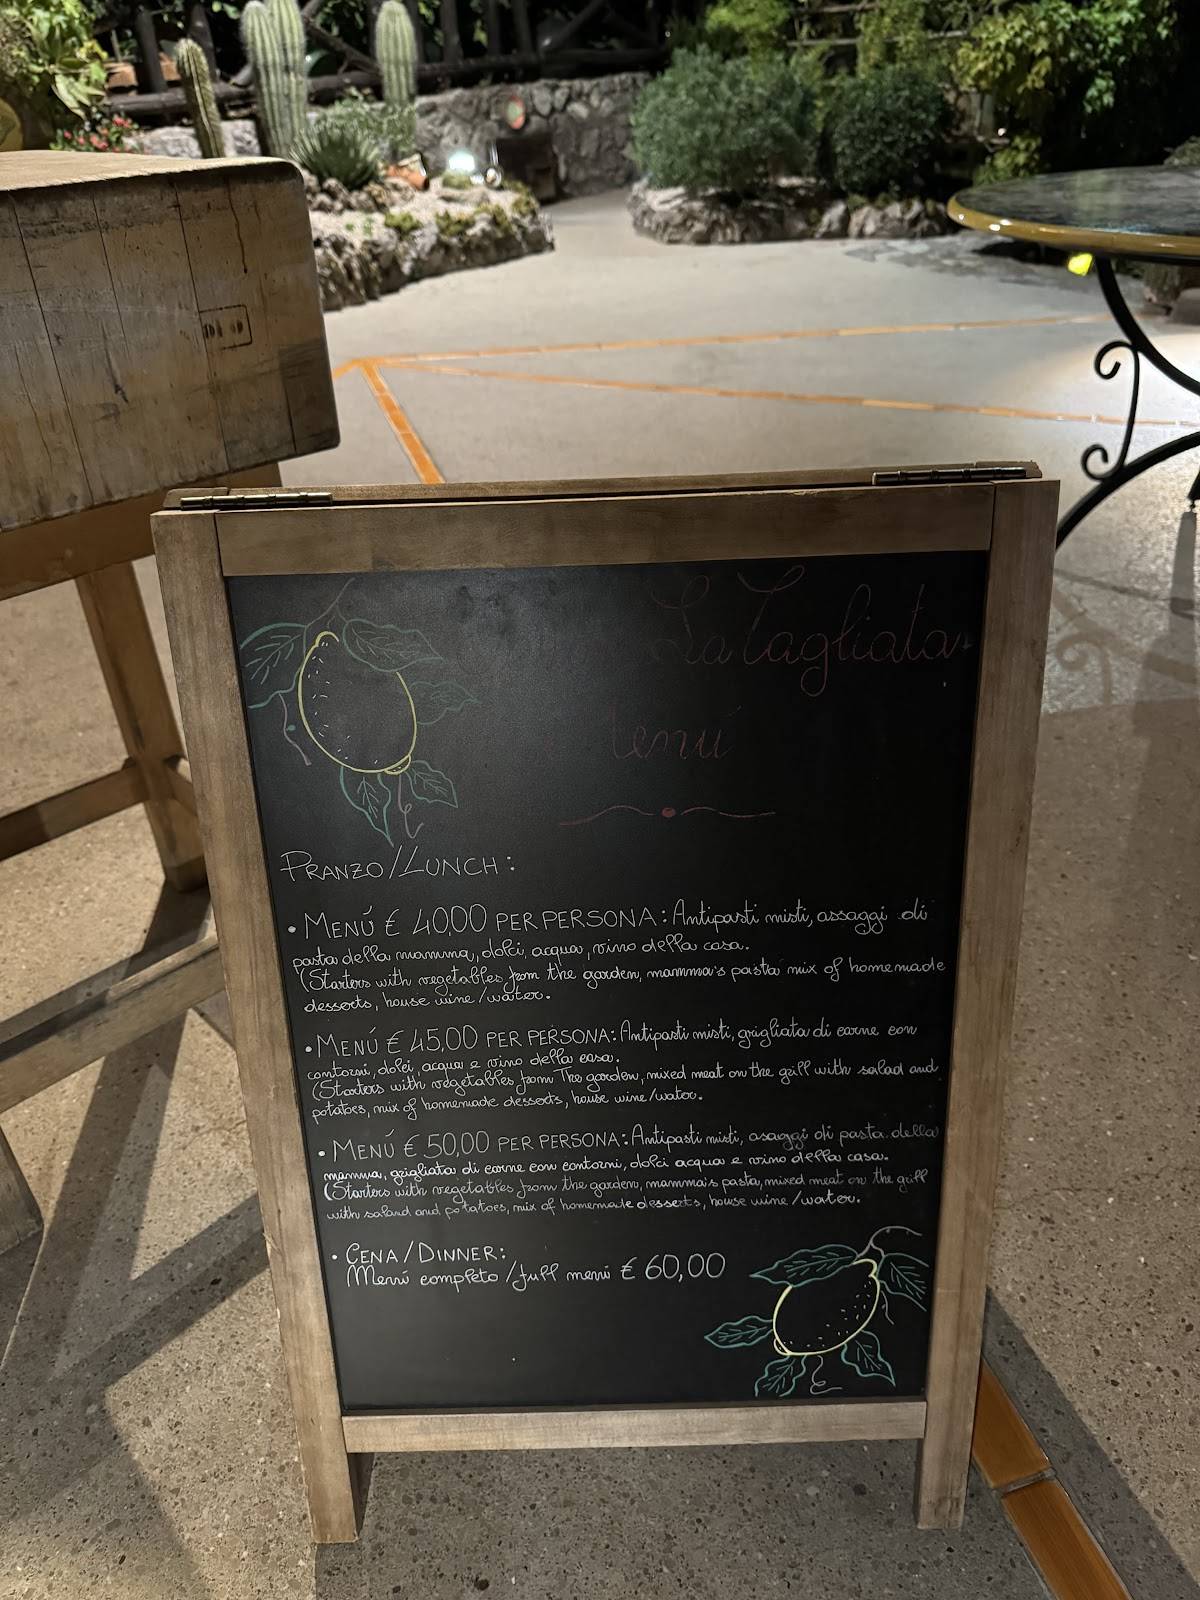 La Tagliata
Menú
PRANZO/LUNCH:
• MENÚ € 40,00 PER PERSONA: Antipasti misti, assaggi di
pasta della mamma, dolci, acqua, vino della casa.
(Starters with vegetables from the garden, mamma's pasta mix of homemade
desserts, house wine/water.
• MENÚ € 45,00 PER PERSONA: Antipasti misti, grigliata di carne con
contorni, dolci, acqua e vino della casa.
(Starters with vegetables from The garden, mixed meat on the grill with salad and
potatoes, mix of homemade desserts, house wine/water.
• MENÚ € 50,00 PER PERSONA: Antipasti misti, assaggi di pasta della
mamma, grigliata di carne con contorni, dolci acqua e vino della casa.
(Starters with vegetables from the garden, mamma's pasta, mixed meat on the grill
with saland and potatoes, mix of homemade desserts, house wine/water.
• CENA/DINNER:
Menú completo/full menú € 60,00